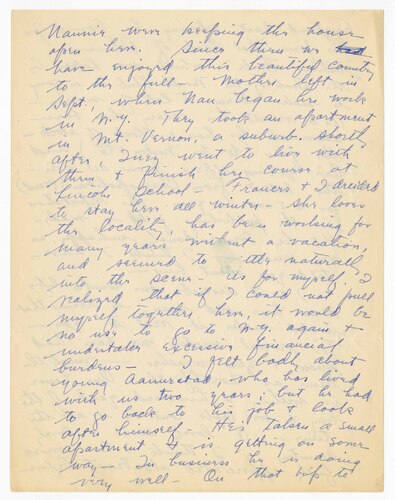 Nannie were keeping the house
open here. Since then we had
have enjoyed this beautiful country
to the full – Mother left in
Sept., when Nan began her work
in N.Y. They took an apartment
in Mt. Vernon, a suburb. Shortly
after, Inez went to live with
them & finish her course at
Lincoln School – Frances & I decided
to stay here all winter – She loves
the locality, has been working for
many years without a vacation,
and seemed to settle naturally
into the scene – As for myself, I
realized that if I could not pull
myself together here, it would be
no use to go to N.Y. again &
undertake excessive financial
burdens – I felt badly about
young, who has lived
with us two years; but he had
to go back to his job & look
after himself – He's taken a small
apartment & is getting on some
way – In business he is doing
very well – On that trip to